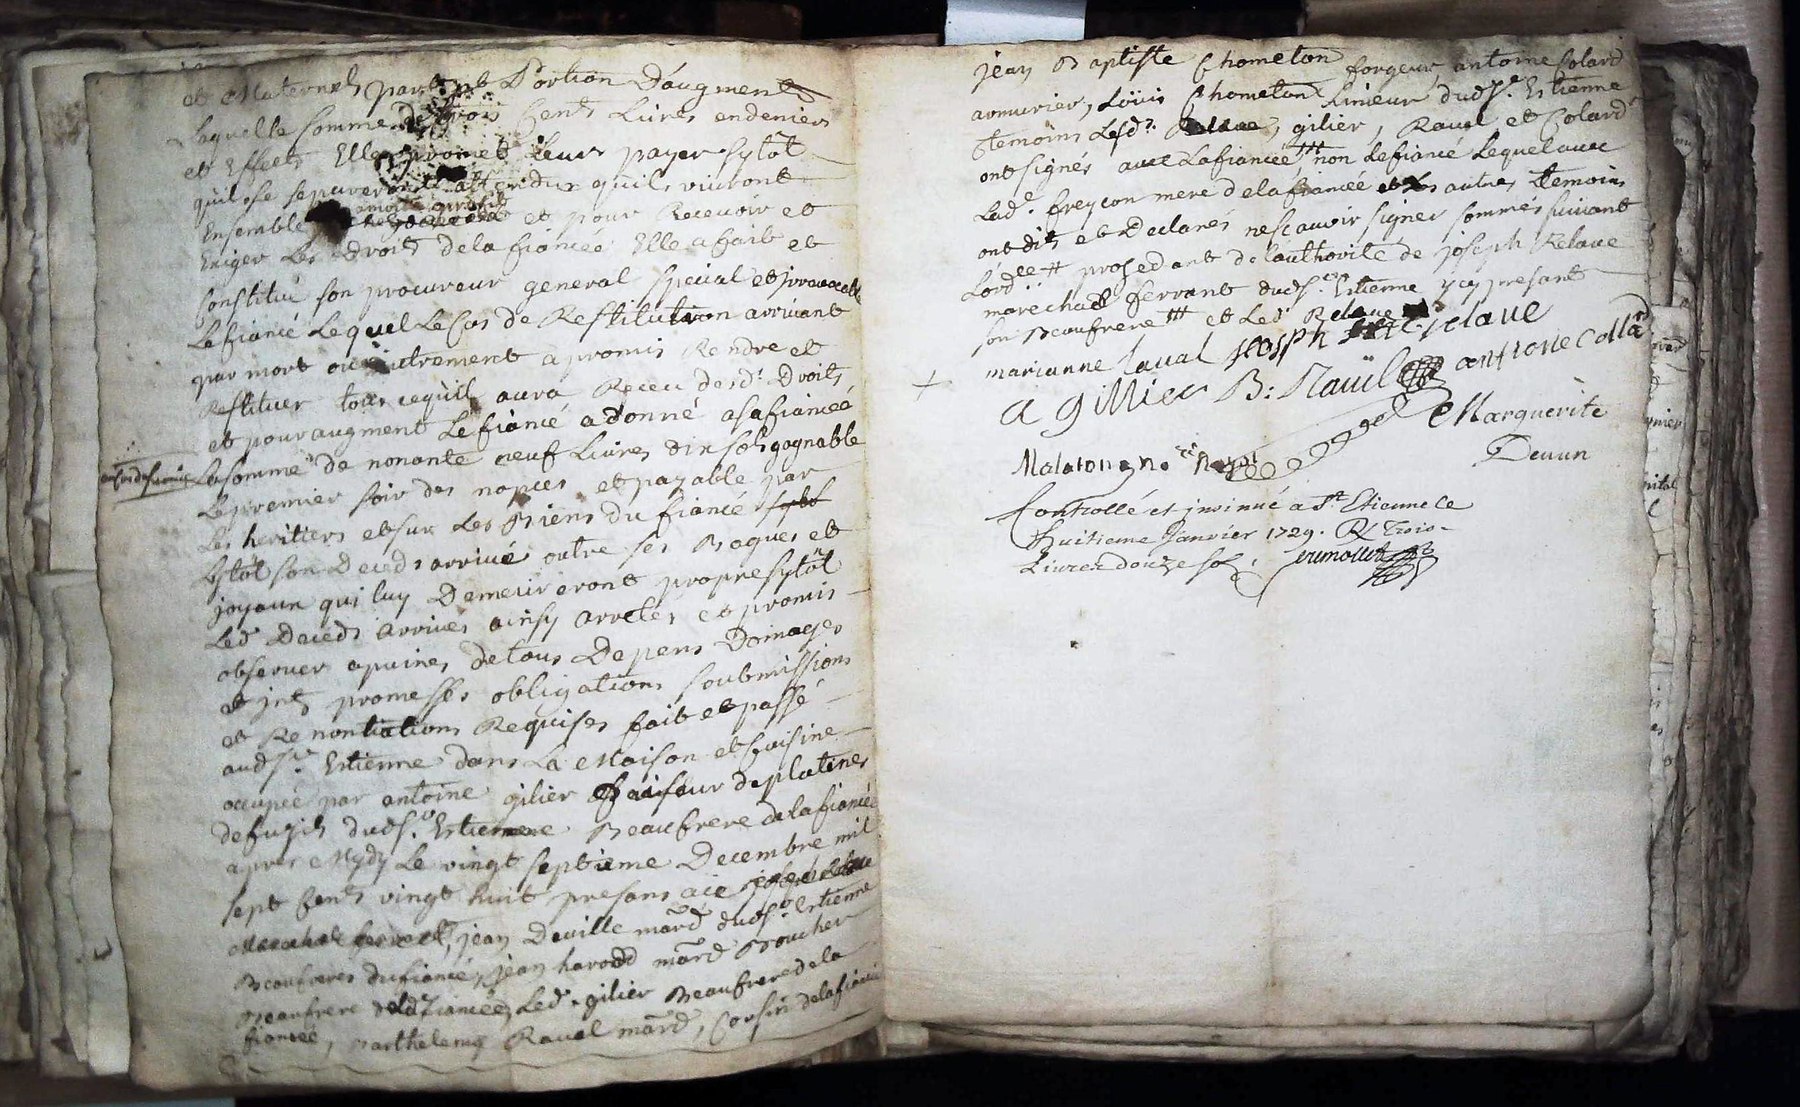 et Maternels part et Portion D'augment
Laquelle somme de trois Cents Livres en deniers
et Effects Elle promet Leurs payer sytôt
qu'ils se separeront attendu qu'ils vivront
Ensemble et pour Recevoir et
Exiger Les Droits de la fiancée Elle a fait et
Constitué son procureur general special et jrrevocable
Le fiancé Lequel Le Cas de Restitution arrivant
par mort ou autrement a promis Rendre et
Restituer tout ce qu'il aura Receu desd. Droits
et pour augment Le fiancé a donné a sa fiancée
La somme de nonante neuf Livres dix sols gagnable
Le premier soir des nopces et payable par
Les heritiers et sur Les Biens du fiancé sytot
sytôt son Deceds arrivé outre ses Bagues et
joyaux qui luy Demeureront propre sytôt
Led. Deceds arrivés ainsy arretés et promis
observer a peines de tous Depens Domages
et jnts promesses obligations soubmissions
et Renontiations Requises fait et passé
aud St. Estienne dans La Maison et Cuisine
occupée par antoine gilier faiseur de platines
de fuzils dud St. Estienne Beaufrere de la fiancée
apres Mydy Le vingt septieme Decembre mil
sept Cents vingt huit presans acie joseph Relave
Marechal ferrant, jean Deville mard dud St. Estienne
Beaufreres du fiancé, jean harodd mard Boucher
Beaufrere de lad fiancée, Led. gilier Beaufrere de la
fiancée, Barthelemy Raval mard, Cousin de la fiancée
jean Baptiste Chometon forgeur, antoine Colard
armurier, Loüis Chometon Limeur dud St. Estienne
Temoins Lesd. Relave, gilier, Ravel et Colard
ont signés avec La fiancée non Le fiancé Lequel avec
Lad. freycon mere de la fiancée et Les autres Temoins
ont dits et Declarés ne scavoir signer sommés suivant
L'ordce # procedant de l'authorité de joseph Relave
marechal ferrant dud St. Estienne ycy presant
son Beaufrere ### et Led Relave
marianne laval joseph relave
a gillier B: Ravel antione Collard
Marguerite
Devun
Controllé et jnsinué a St. Etienne le
huitieme Janvier 1729. R Trois
Livres douze sols